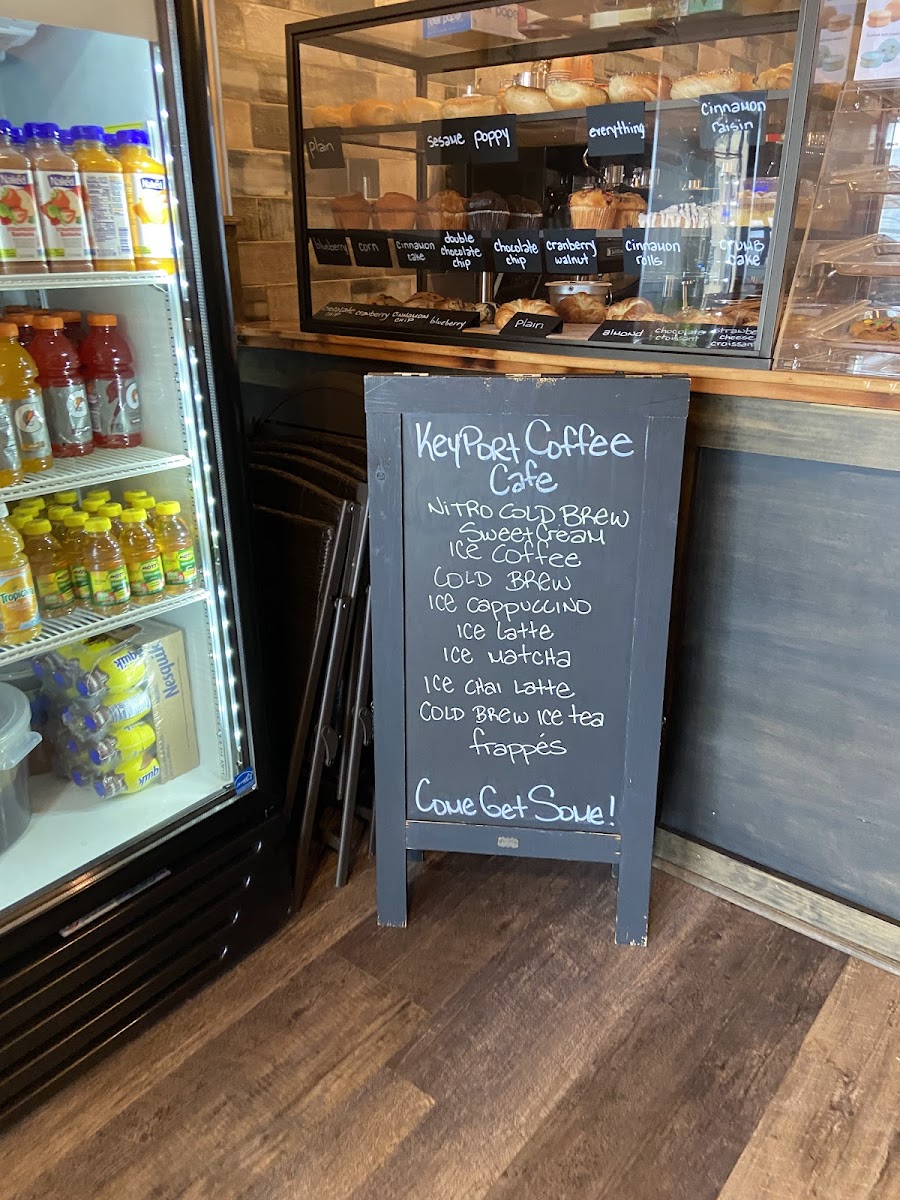 plain
sesame
poppy
everything
cinnamon
raisin
blueberry
corn
cinnamon
cake
double
chocolate
chip
chocolate
chip
cranberry
walnut
cinnamon
rolls
crumb
cake
chocolate
chip
cranberry
cinnamon
chip
blueberry
plain
almond
chocolate
croissant
cheese
croissant
KeyPort Coffee
Cafe
Nitro Cold Brew
Sweet Cream
Ice Coffee
Cold Brew
Ice Cappuccino
Ice Latte
Ice Matcha
Ice Chai Latte
Cold Brew Ice Tea
frappés
Come Get Some!
Naked
Naked
Mott's
Mott's
Tropicana
Nesquik